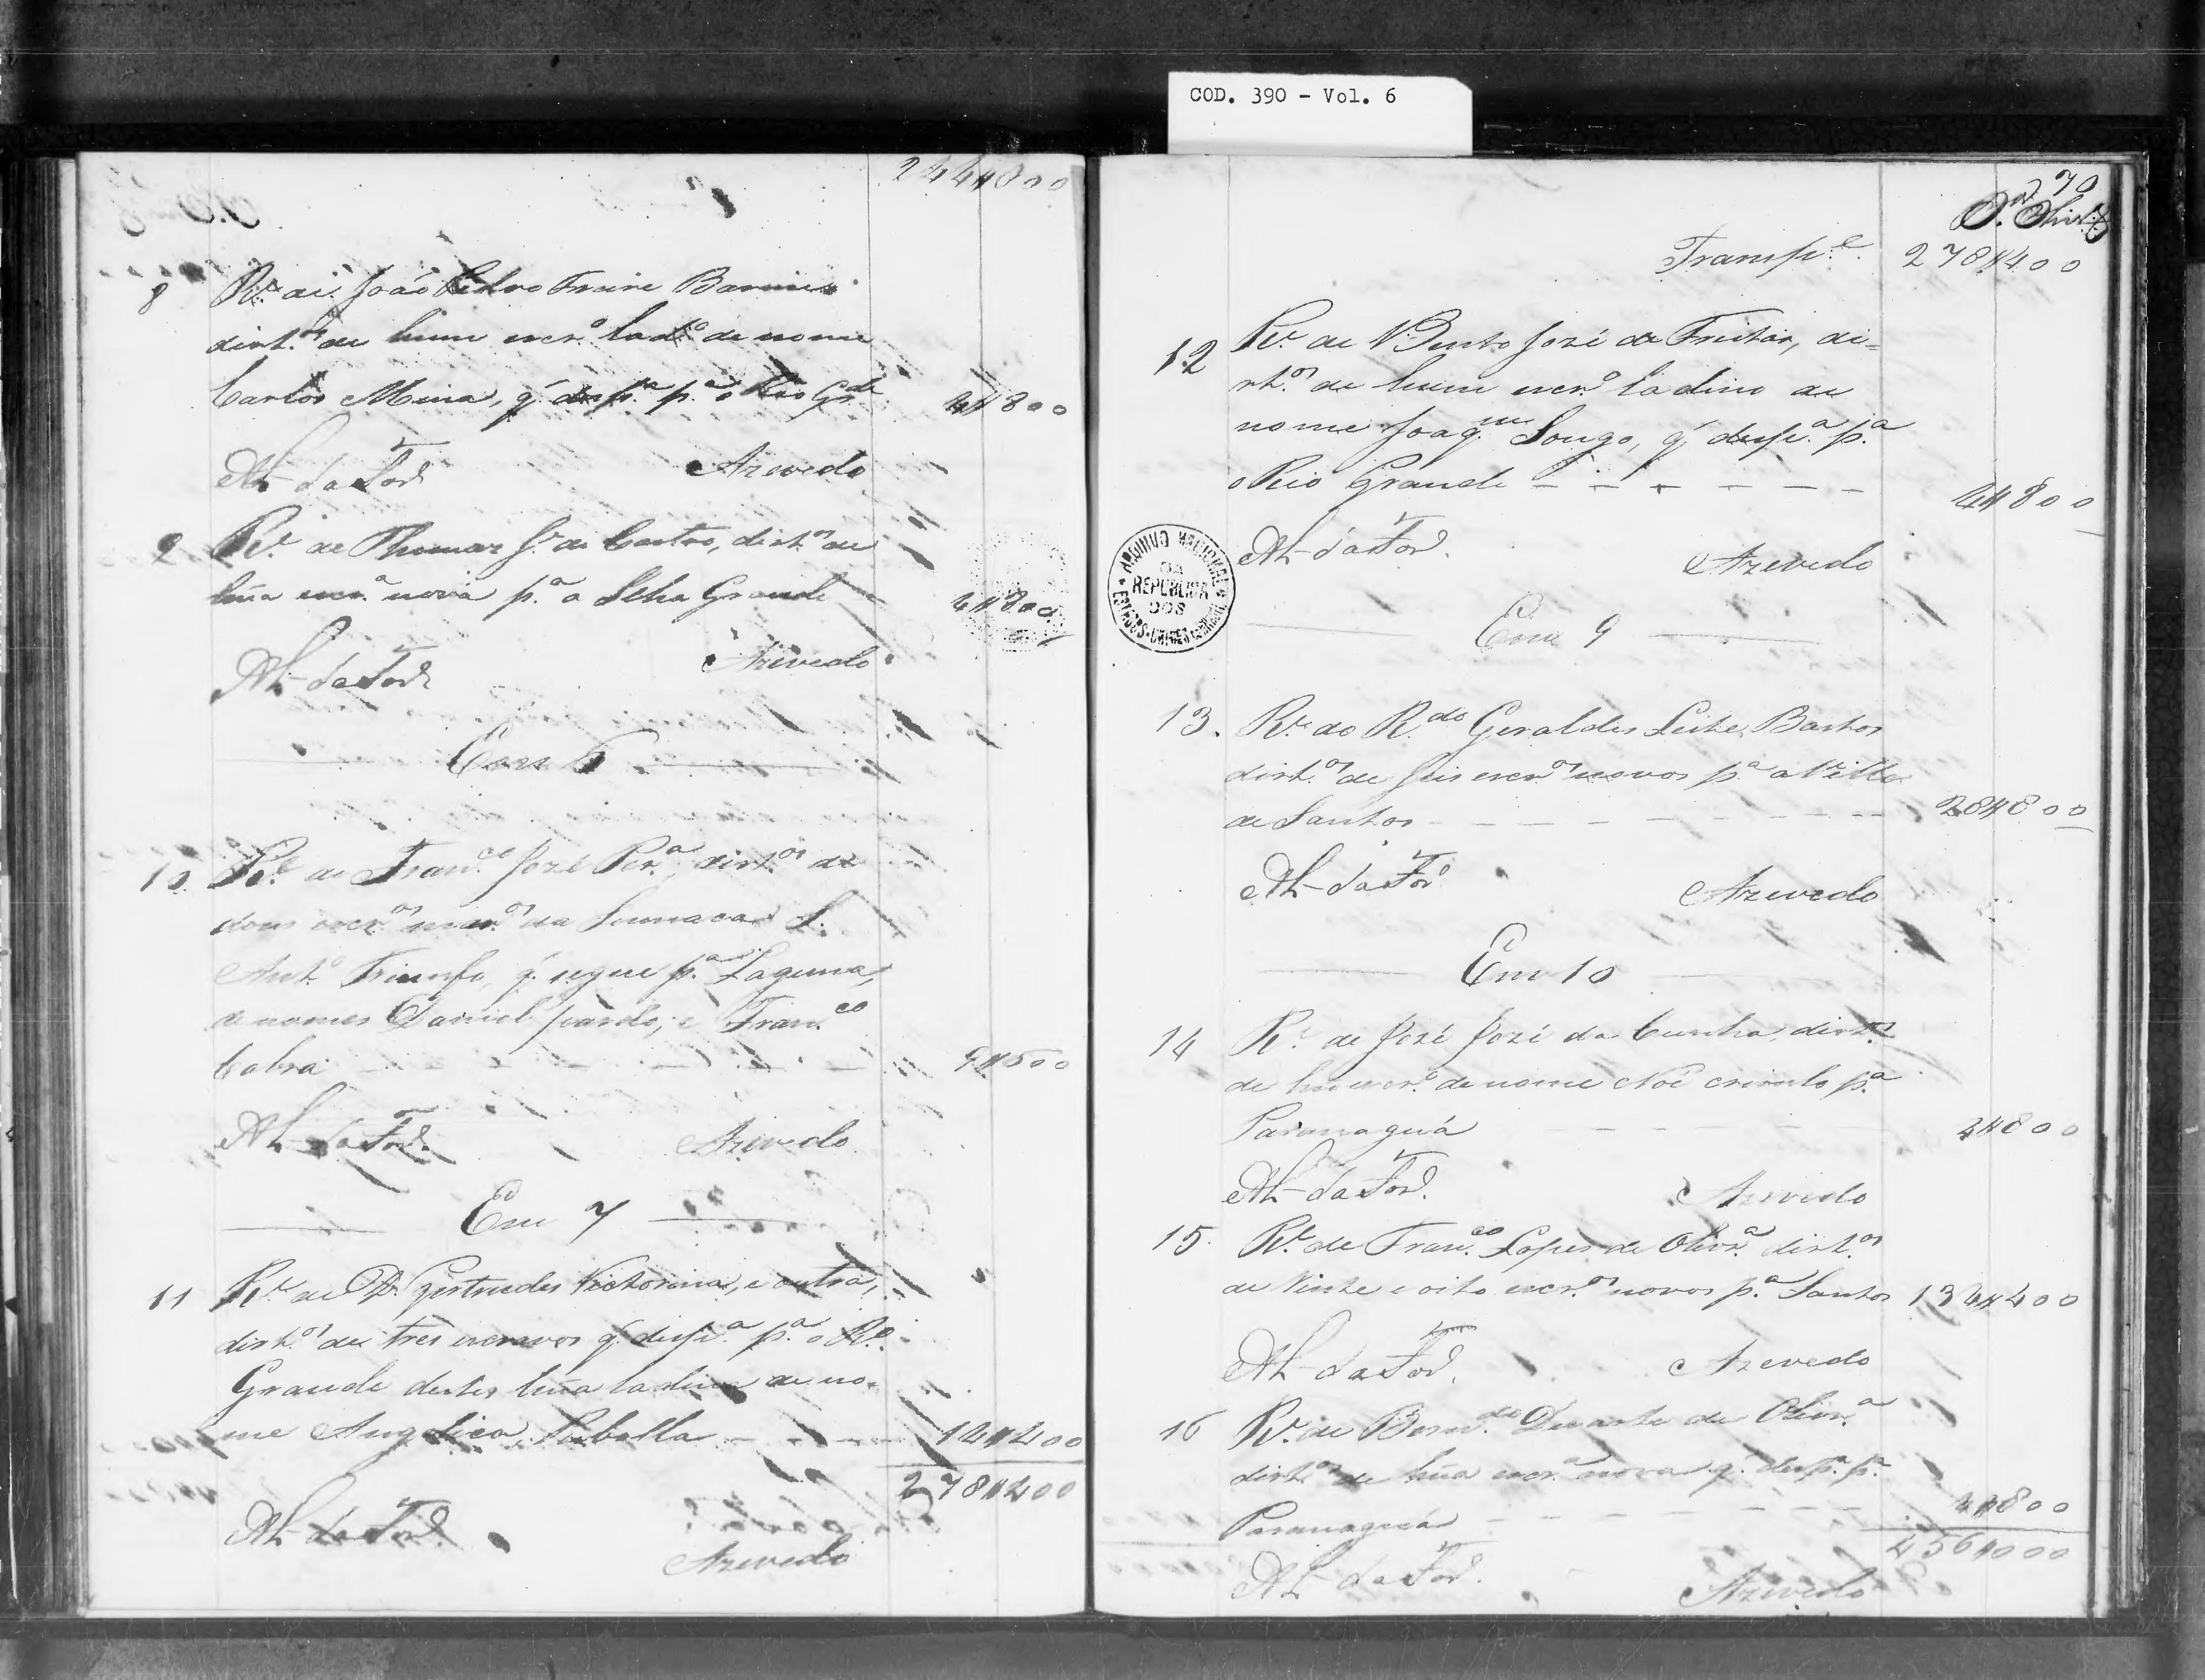 COD. 390 - Vol. 6
244$800
8 R.e de João Pedro Freire
dirt.os de hum escr.o lad.o de nome
Carlos Mina, q' desp.a p.a o Rio Gr.de 4$800
Azevedo
9 R.e de Thomaz J.e de Castro, dirt.os de
hũa escr.a nova p.a a Ilha Grande 4$800
Azevedo
Em 6
10 R.e de Fran.co José Per.a, dirt.os de
dous escr.os mar.os da Sumaca S.
Ant.o Triunfo, q' segue p.a Laguna,
de nomes Daniel pardo, e Fran.co
Cabra 9$600
Azevedo
Em 7
11 R.e de D. Gertrudes Victorina, e outra,
dirt.os de tres escravos q' desp.a p.a o R.o
Grande destes hũa ladina de no-
me Angelica, Rebolla 14$400
278$400
Azevedo
70
Transp.e 278$400
12 R.e de Bento José de Freitas, di=
rt.os de hum escr.o ladino de
nome Joaq.m Songo, q' desp.a p.a
o Rio Grande 4$800
Azevedo
ARQUIVO NACIONAL
DA
REPUBLICA
DOS
ESTADOS-UNIDOS
Em 9
13. R.e do R.do Geraldes Leite Bastos
dirt.os de seis escr.os novos p.a a Villa
de Santos 28$800
Azevedo
Em 10
14 R.e de José José da Cunha, dirt.os
de hu escr.o de nome Noé crioulo p.a
Paranaguá 4$800
Azevedo
15. R.e de Fran.co Lopes de Olivr.a dirt.os
de Vinte e oito escr.os novos p.a Santos 134$400
Azevedo
16 R.e de Bern.do Duarte de Olivr.a
dirt.os de hũa escr.a nova q' desp.a p.a
Paranaguá 4$800
456$000
Azevedo